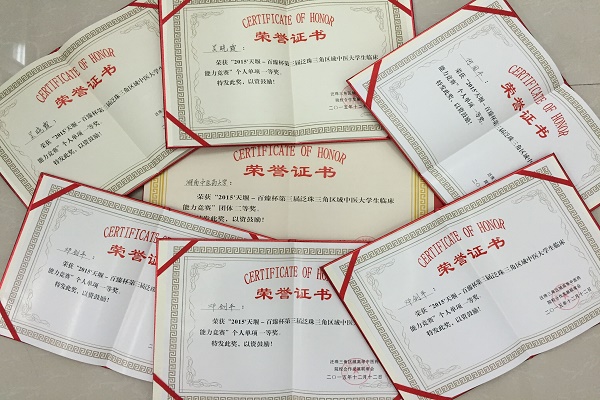 CERTIFICATE OF HONOR
荣誉证书
荣获"2015'天堰－百臻杯第三届泛珠三角区域中医大学生临床
能力竞赛"个人单项一等奖。
特发此奖,以资鼓励!
CERTIFICATE OF HONOR
荣誉证书
荣获"2015'天堰－百臻杯第三届泛
能力竞赛"个人单项一等奖。
特发此奖,以资鼓励!
CERTIFICATE OF HONOR
荣誉证书
荣获"2015'天堰－百臻杯第三届泛珠三角区域中医大学生临床
能力竞赛"个人单项
特发此奖,以资鼓励!
CERTIFICATE OF HONOR
荣誉证书
湖南中医药大学:
荣获"2015'天堰－百臻杯第三届泛珠三角区域中医大学生临床
能力竞赛"团体二等奖。
发此奖,以资鼓励!
CERTIFICATE OF HONOR
荣誉证书
荣获"2015'天堰－百臻杯第三届泛珠
能力竞赛"个人单项一等奖。
特发此奖,以资鼓励!
CERTIFICATE OF HONOR
荣誉证书
荣获"2015'天堰－百臻杯第三届泛珠三角区域中医
能力竞赛"个人单项一等奖。
特发此奖,以资鼓励!
泛珠三角区域高等中医药
院校合作发展联席会
二〇一五年十二月十二日
CERTIFICATE OF HONOR
荣誉证书
荣获"2015'天堰－百臻杯第三届泛珠三角区域中医大学生临床
能力竞赛"个人单项一等奖。
特发此奖,以资鼓励!